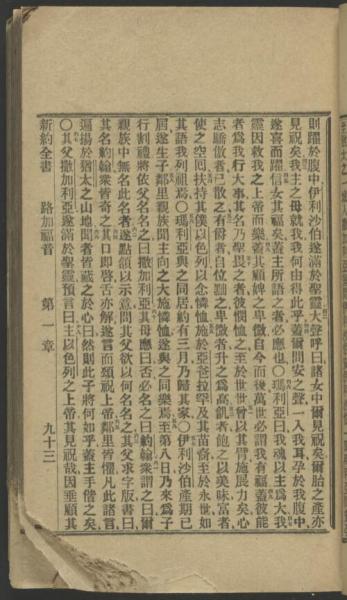 則躍於腹中伊利沙伯遂滿於聖靈大聲呼曰諸女中爾見祝矣爾胎之產亦
見祝矣我主之母就我我何由得此乎蓋爾問安之聲一入我耳孕於我腹中
遂喜而躍信女其福矣蓋主所語之者必應也○瑪利亞曰我魂以主為大我
靈因救我之上帝而樂蓋其顧婢之卑微自今而後萬世必謂我有福蓋彼能
者為我行大事其名乃聖畏之者彼憫恤之至於世世曾以其臂施展力矣心
志驕傲者已散之有爵者自位黜之卑微者升之為高飢者飽之以美味富者
使之空囘扶持其僕以色列以念憐恤施於亞爸拉罕及其苗裔至於永世如
其語我列祖焉○瑪利亞與之同居約有三月乃歸其家○伊利沙伯產期已
屆遂生子鄰里親族聞主向之大施憐恤遂與之同樂焉至第八日乃來為子
行割禮將依父名名之曰撒加利亞其母應曰舌必名之曰約翰衆謂之曰爾
親族中無名此名者遂點頷以示意問其父欲以何名名之其父求字版書曰
其名約翰衆皆奇之其口即啓舌亦解遂言而頌祝上帝鄰里皆懼凡此諸言
遍揚於猶太之山地聞者皆藏之於心曰然則此子將何如乎蓋主手偕之矣
○其父撒加利亞遂滿於聖靈預言曰主以色列之上帝其見祝哉因垂顧其
新約全書 路加福音 第一章 九十三